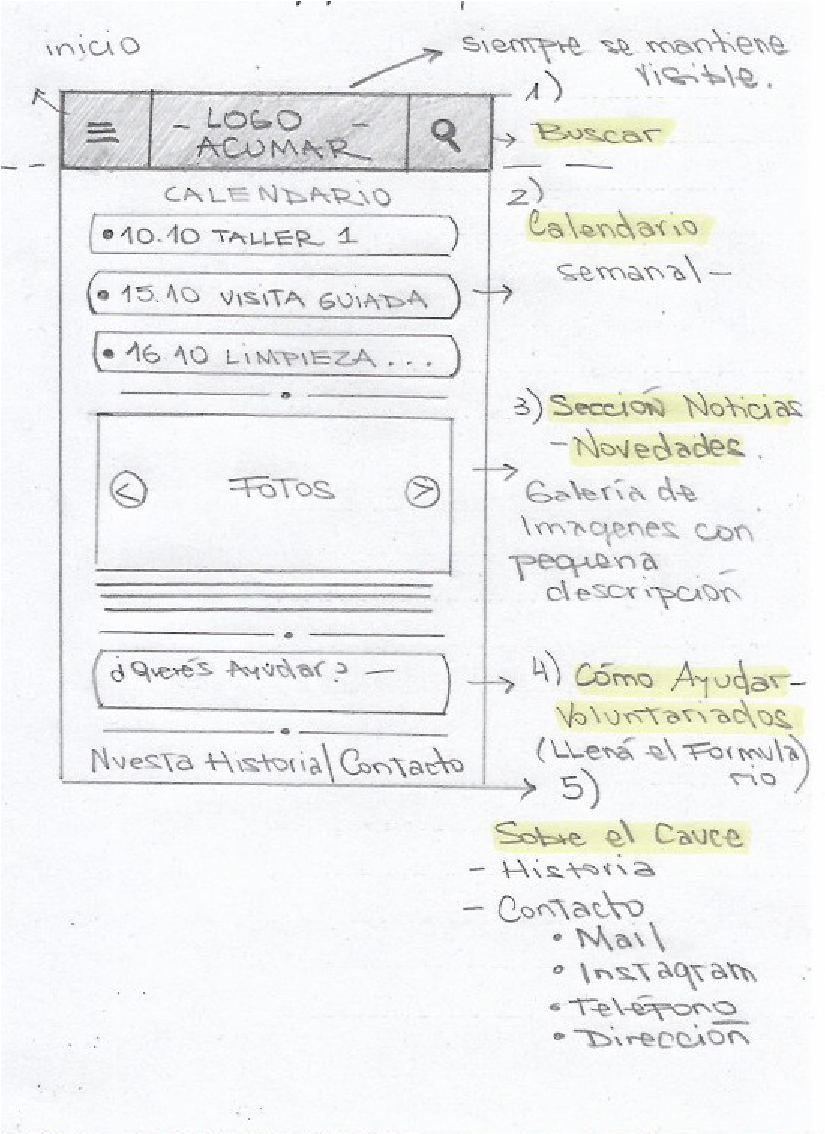 inicio
siempre se mantiene
visible.
1)
- LOGO -
ACUMAR
Buscar
CALENDARIO
• 10.10 TALLER 1
• 15.10 VISITA GUIADA
• 16 10 LIMPIEZA...
2)
Calendario
semanal -
FOTOS
3) Sección Noticias
- Novedades.
Galería de
Imagenes con
pequena
descripción
¿Querés Ayudar? —
4) Cómo Ayudar -
Voluntariados
(LLená el Formula
rio)
Nuesta Historia/Contacto
5)
Sobre el Cauce
- Historia
- Contacto
• Mail
• Instagram
• Teléfono
• Dirección